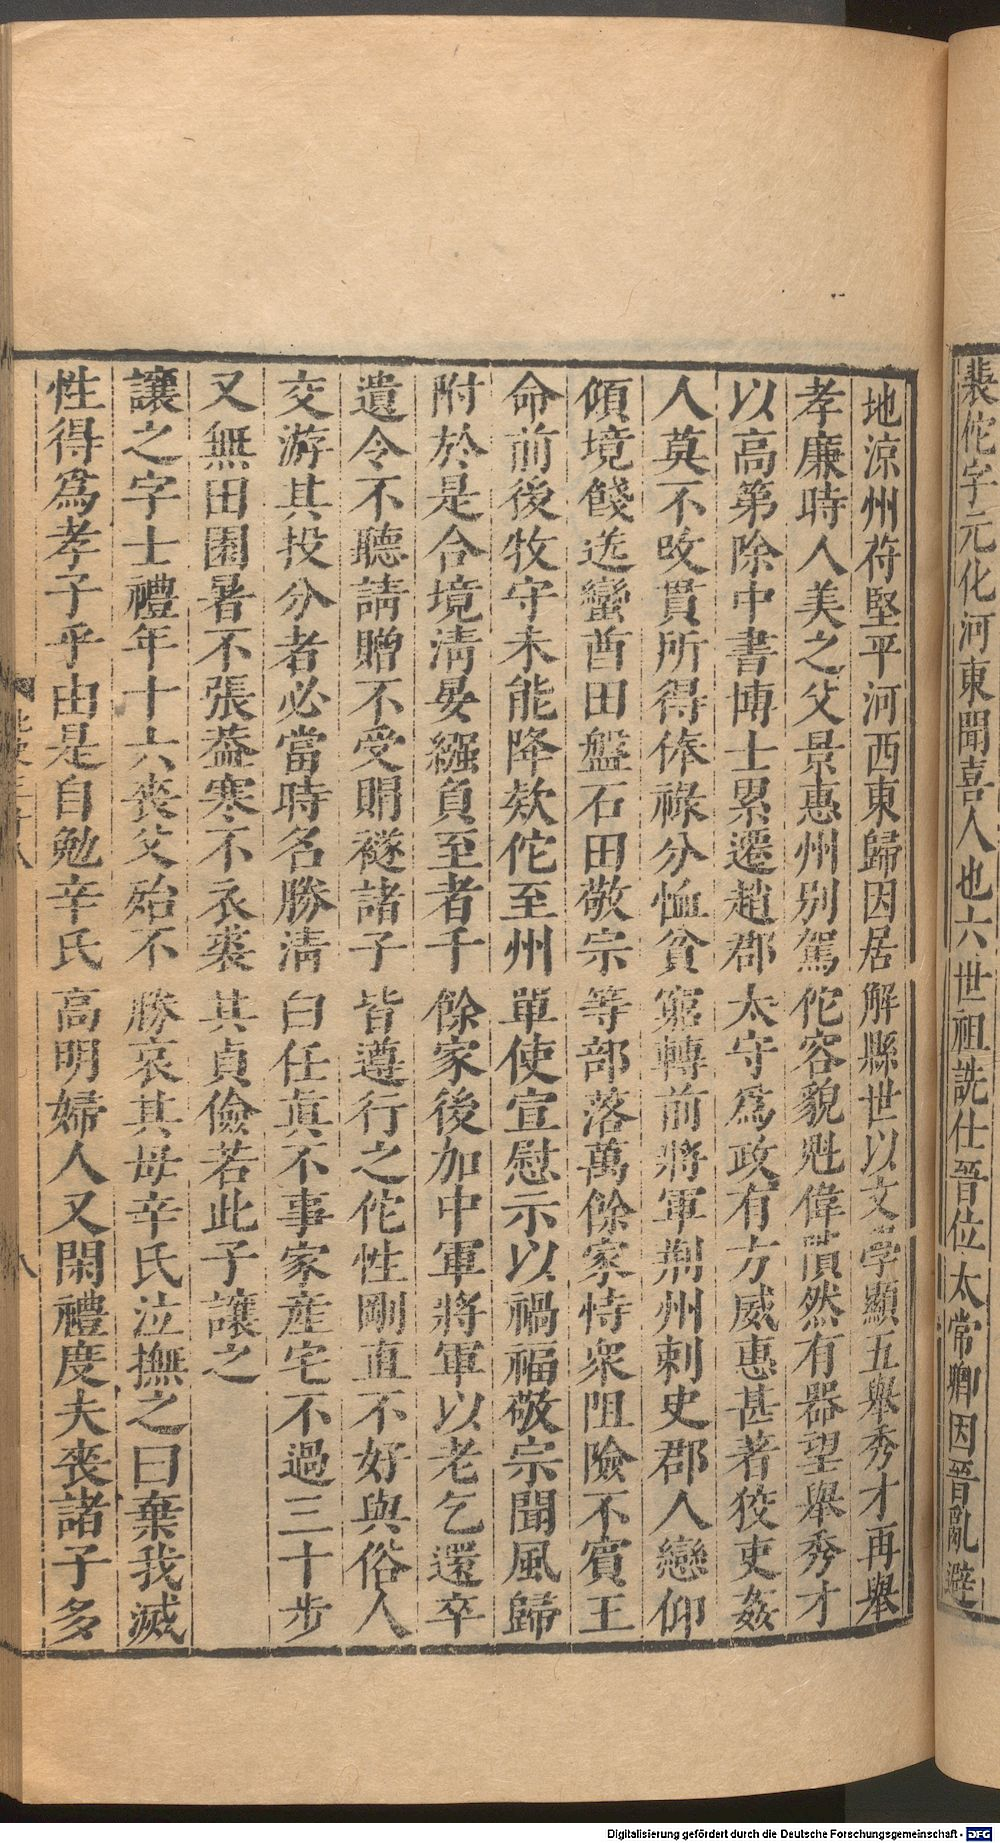 裴佗字元化河東聞喜人也六世祖詵仕晉位太常卿因晉亂避
地涼州苻堅平河西東歸因居解縣世以文學顯五舉秀才再舉
孝廉時人美之父景惠州別駕佗容貌魁偉隤然有器望舉秀才
以高第除中書博士累遷趙郡太守爲政有方威惠甚著狡吏姦
人莫不改貫所得俸祿分恤貧窮轉前將軍荆州刺史郡人戀仰
傾境餞送蠻酋田盤石田敬宗等部落萬餘家恃衆阻險不賓王
命前後牧守未能降欵佗至州單使宣慰示以禍福敬宗聞風歸
附於是合境淸晏繦負至者千餘家後加中軍將軍以老乞還卒
遺令不聽請贈不受賵襚諸子皆遵行之佗性剛直不好與俗人
交游其投分者必當時名勝淸白任眞不事家產宅不過三十步
又無田園暑不張蓋寒不衣裘其貞儉若此子讓之
讓之字士禮年十六喪父殆不勝哀其母辛氏泣撫之曰棄我滅
性得爲孝子乎由是自勉辛氏高明婦人又閑禮度夫喪諸子多
八
Digitalisierung gefördert durch die Deutsche Forschungsgemeinschaft - DFG